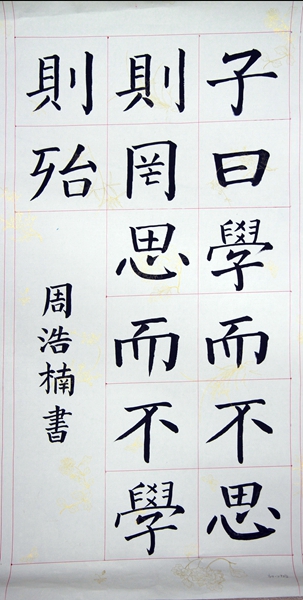 子曰學而不思
則罔思而不學
則殆
周浩楠書